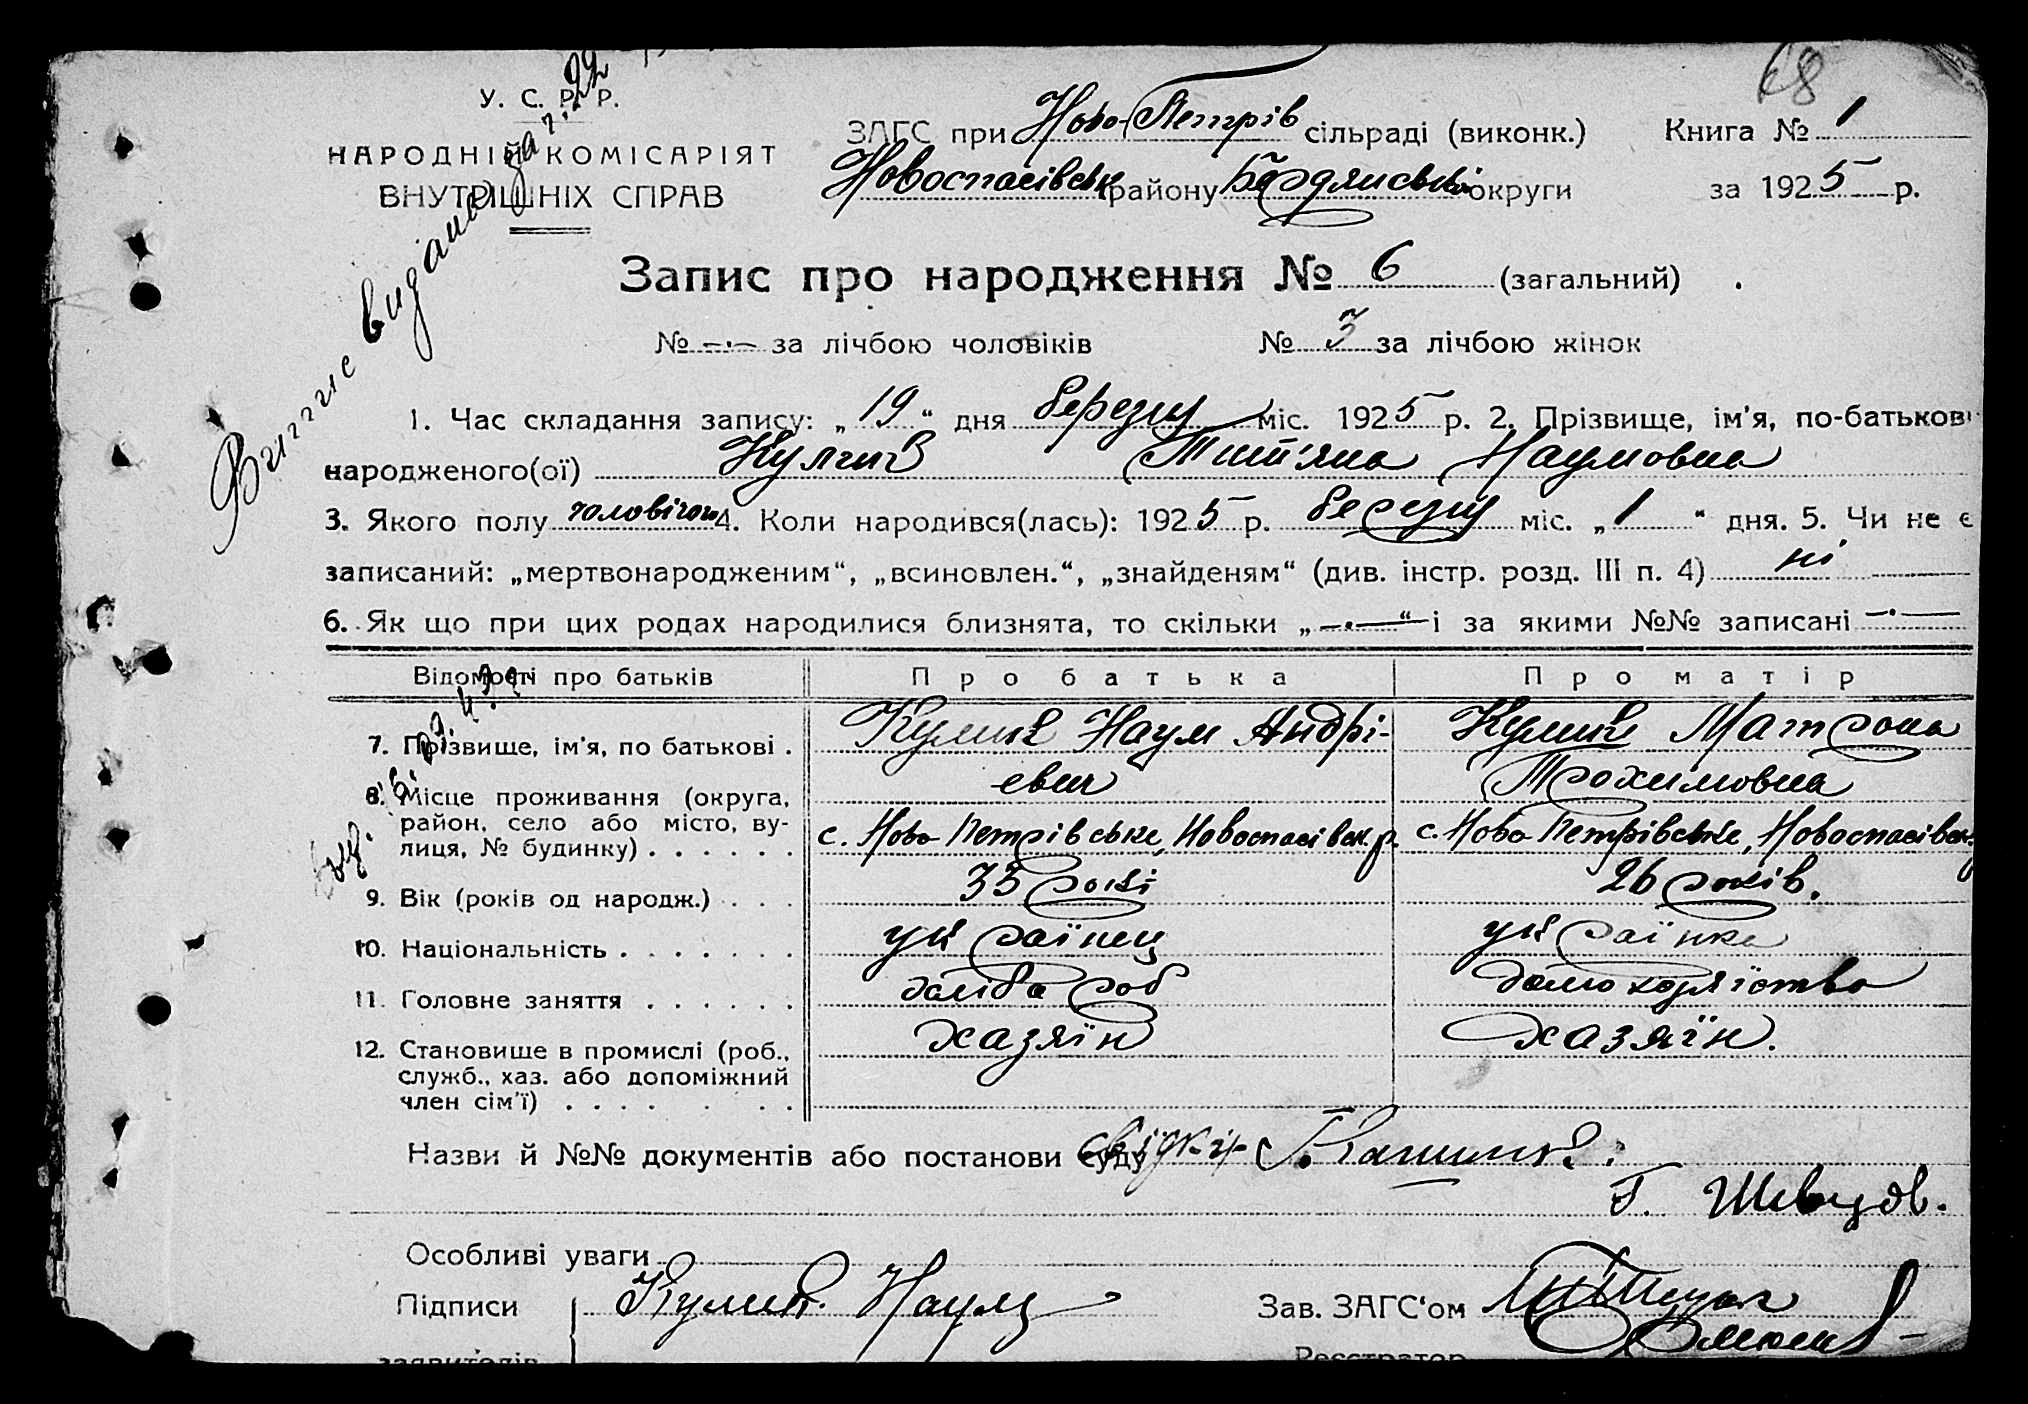 68
У. С. Р. Р.
НАРОДНІЙ КОМІСАРІЯТ
ВНУТРІШНІХ СПРАВ
ЗАГС при Ново-Петрів сільраді (виконк.) Книга № 1
Новоспасівськ району Бердянської округи за 1925 р.
Випис видано за г. 22
Запис про народження № 6 (загальний)
№ —·— за лічбою чоловіків № 3 за лічбою жінок
1. Час складання запису: „19“ дня березня міс. 1925 р. 2. Прізвище, ім’я, по-батькові
народженого(ої) Кулик Тит'яна Наумовна
3. Якого полу чоловічого 4. Коли народився(лась): 1925 р. березня міс. „1“ дня. 5. Чи не є
записаний: „мертвонародженим“, „всиновлен.“, „знайденям“ (див. інстр. розд. III п. 4) ні
6. Як що при цих родах народилися близнята, то скільки „—·—“ і за якими №№ записані —·—
Відомості про батьків Про батька Про матір
7. Прізвище, ім’я, по батькові . Кулик Наум Андрі- Кулик Матрона
евич Трохимовна
8. Місце проживання (округа,
район, село або місто, ву-
лиця, № будинку) . . . . . . с. Ново Петрівське, Новоспасівск. р. с. Ново Петрівське, Новоспасівск.
9. Вік (років од народж.) . . . 35 років 26 років.
10. Національність . . . . . . . українец українка
11. Головне заняття . . . . . . хлібороб домохозяїство
12. Становище в промислі (роб., хазяїн хазяїн.
служб., хаз. або допоміжний
член сім’ї) . . . . . . . .
Назви й №№ документів або постанови суду свідки
Г. Шевцов.
Особливі уваги
Підписи Кулик Наум Зав. ЗАГС‘ом
заявителів Реєстратор